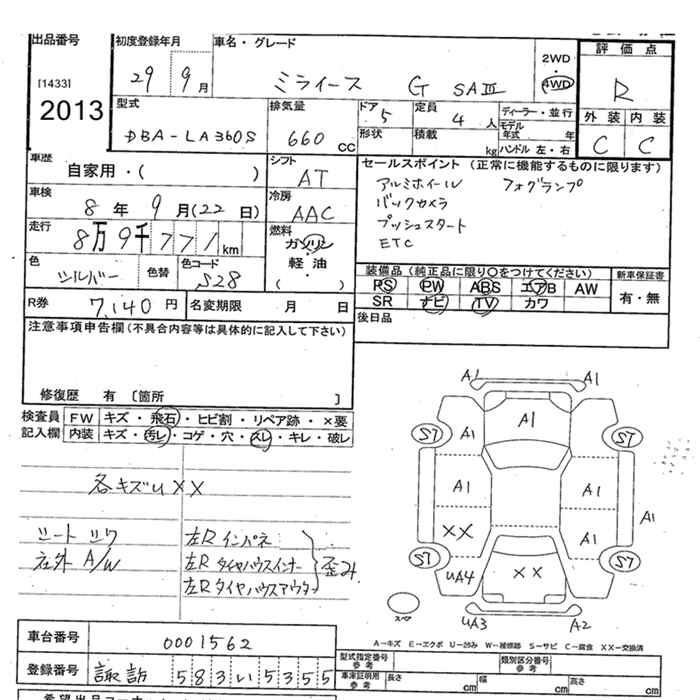 出品番号
[1433]
2013
初度登録年月
29 9月
車名・グレード
ミライース G SAⅢ
2WD
4WD
評価点
R
外装 内装
C C
型式
DBA-LA360S
排気量
660 CC
ドア 5
形状
定員 4 人
積載 kg
ディーラー・並行
モデル年式 年
ハンドル 左・右
車歴
自家用・( )
シフト
AT
車検
8年 9月(22日)
冷房
AAC
走行
8万9千771km
燃料
ガソリン
軽油
( )
色
シルバー
色替
色コード
S28
R券 7,140円
名変期限 月 日
セールスポイント (正常に機能するものに限ります)
アルミホイール フォグランプ
バックカメラ
プッシュスタート
ETC
装備品 (純正品に限り○をつけてください)
PS PW ABS エアB AW
SR ナビ TV カワ
新車保証書
有・無
後日品
注意事項申告欄 (不具合内容等は具体的に記入して下さい)
修復歴 有 [箇所 ]
検査員
記入欄
FW キズ・飛石・ヒビ割・リペア跡・×要
内装 キズ・汚レ・コゲ・穴・スレ・キレ・破レ
各キズU XX
シート シワ
社外 A/W
左R インパネ
左R タイヤハウスインナー
左R タイヤハウスアウター
歪み
A1 A1
A1
S7 A1 A1 S7
A1 A1
A1
XX A1
S7 S7
UA4 XX
スペア
UA3 A2
A-キズ E-エクボ U-凹み W-補修跡 S-サビ C-腐食 XX-交換済
車台番号 0001562
登録番号 諏訪 583い5355
型式指定番号 参考
類別区分番号 参考
車庫証明用 参考
長さ cm 幅 cm 高さ cm